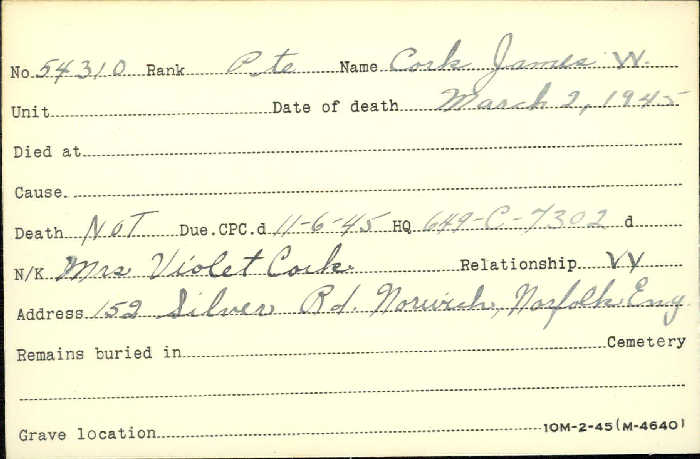 No. 54310 Rank Pte Name Cork James W.
Unit Date of death March 2, 1945
Died at
Cause.
Death Not Due.CPC.d 11-6-45 HQ 649-C-7302 d
N/K Mrs Violet Cork Relationship W
Address 152 Silver Rd. Norwich, Norfolk Eng.
Remains buried in Cemetery
Grave location 10M-2-45 (M-4640)